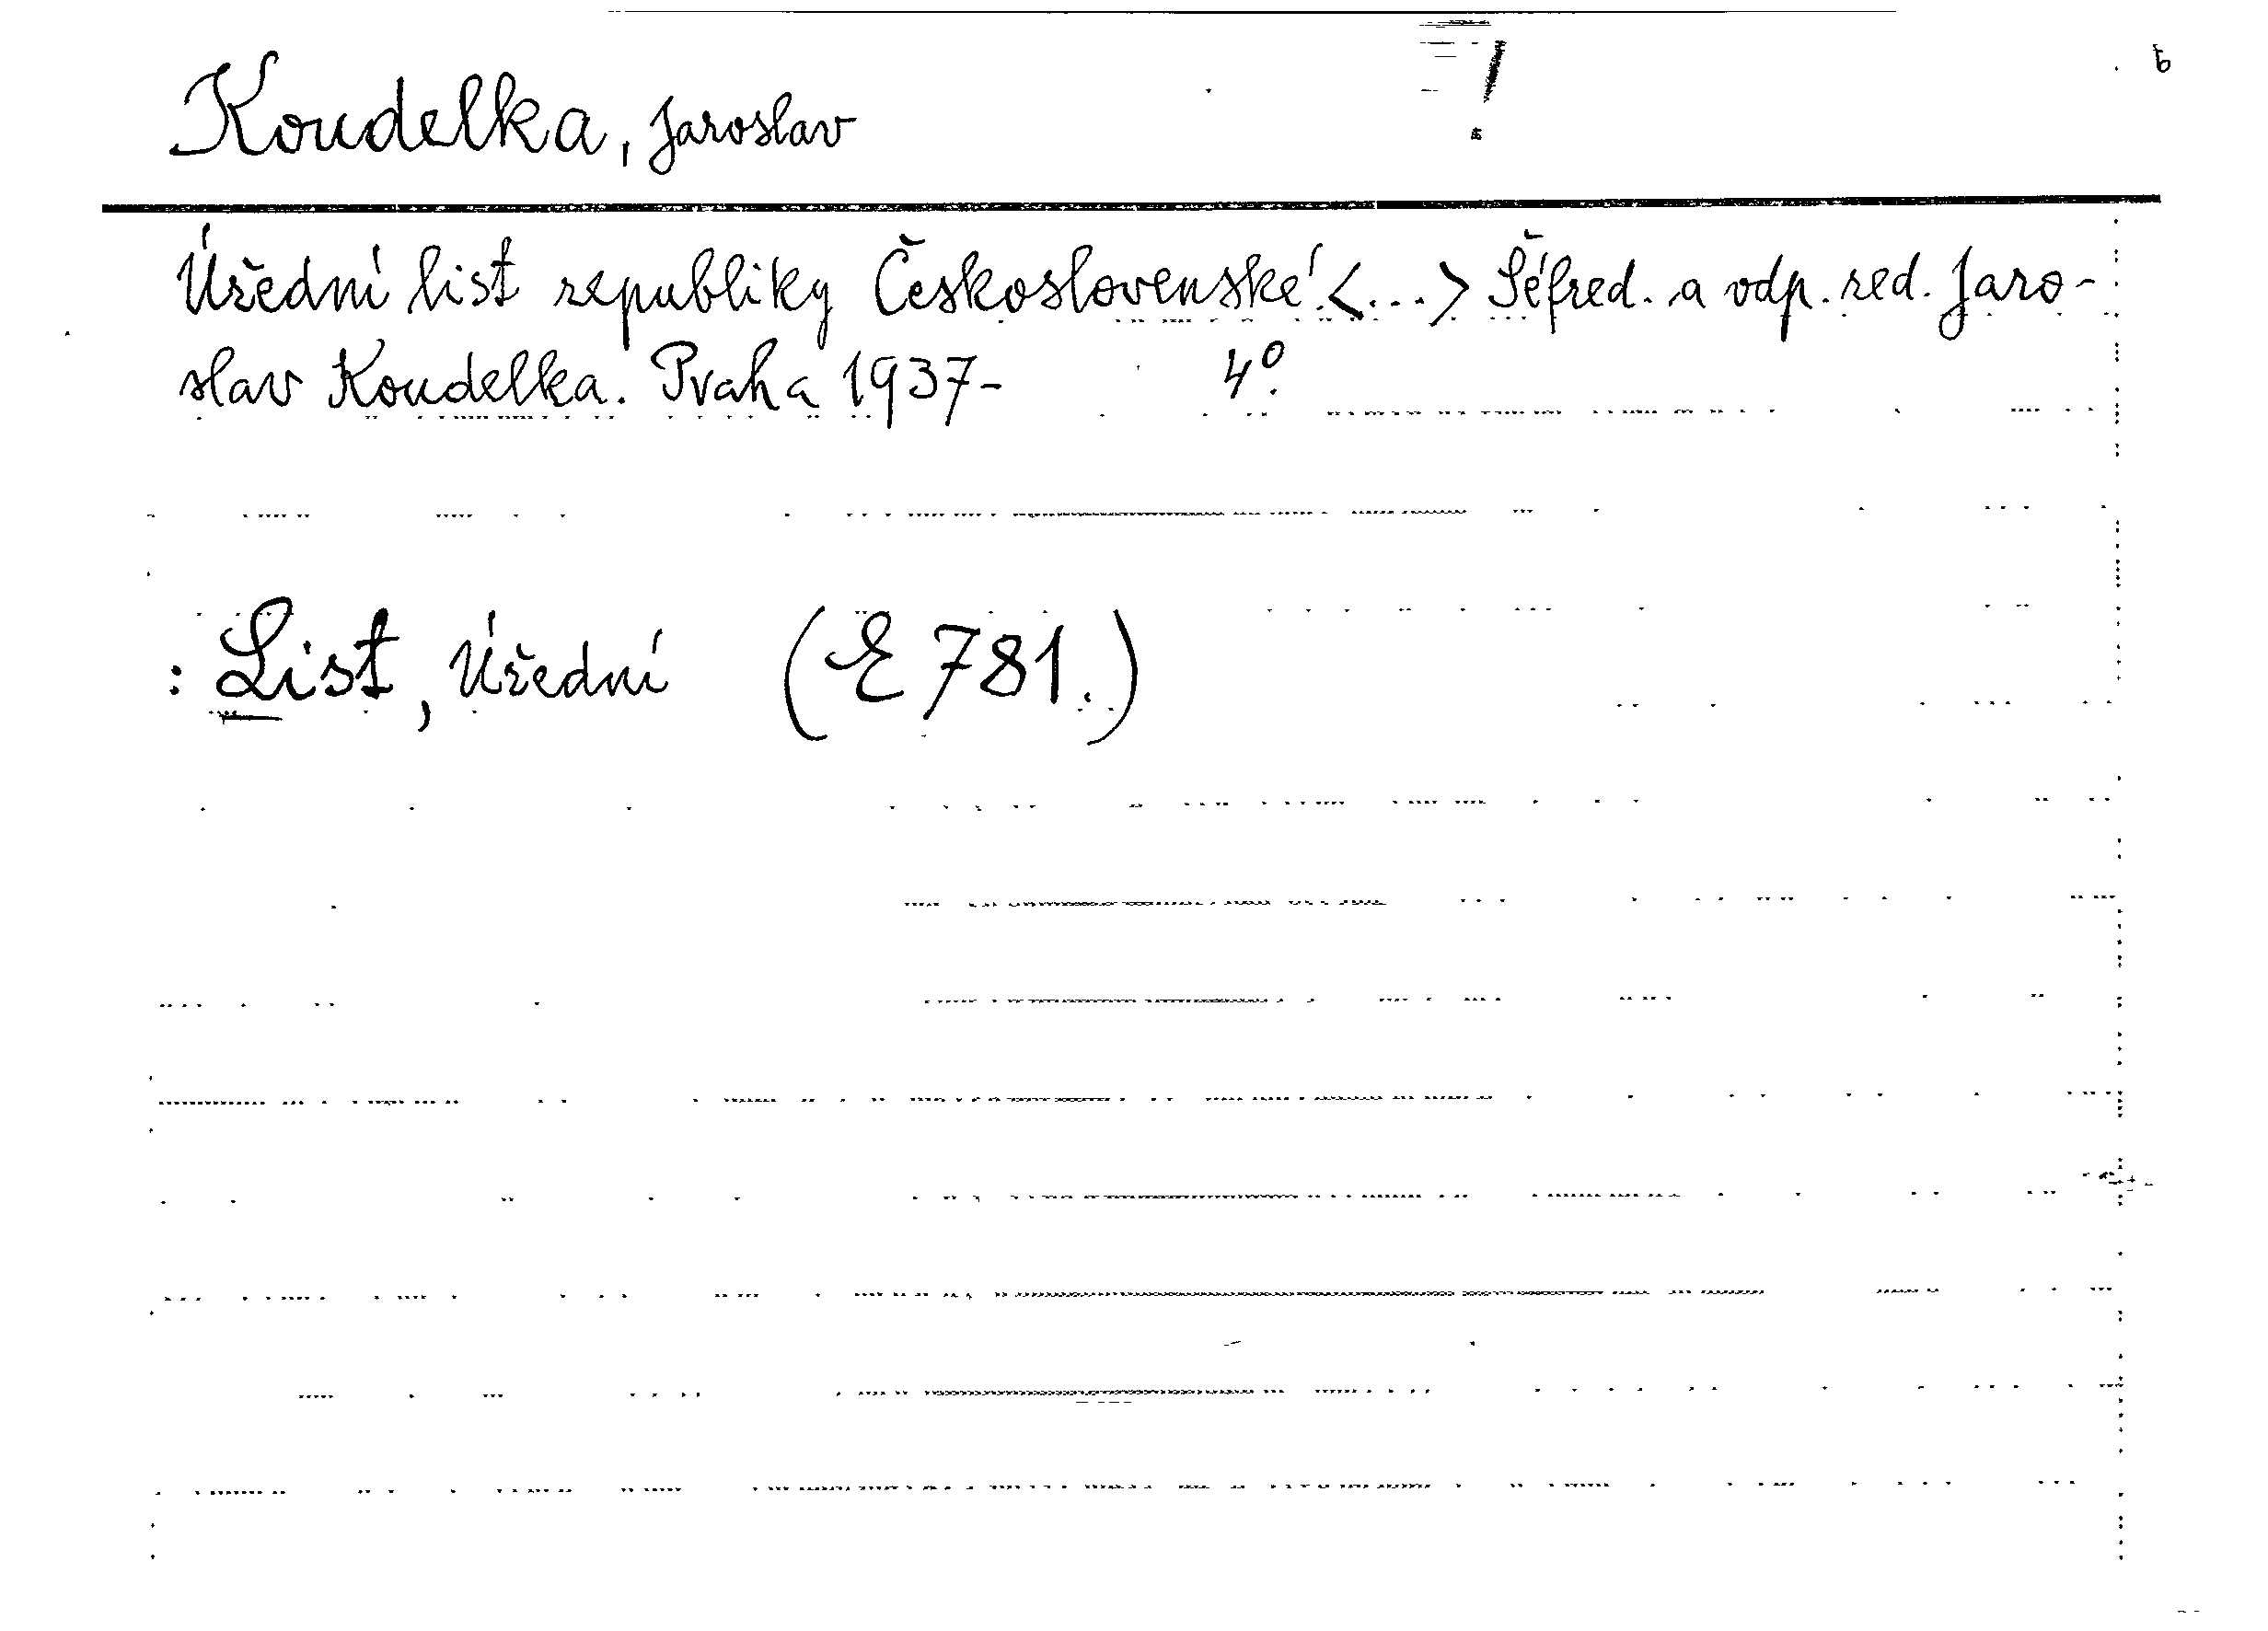 Koudelka, Jaroslav
!
Úřední list republiky Československé. <...> Šéfred. a odp. red. Jaro-
slav Koudelka. Praha 1937- 4°.
: List, Úřední (E 781.)